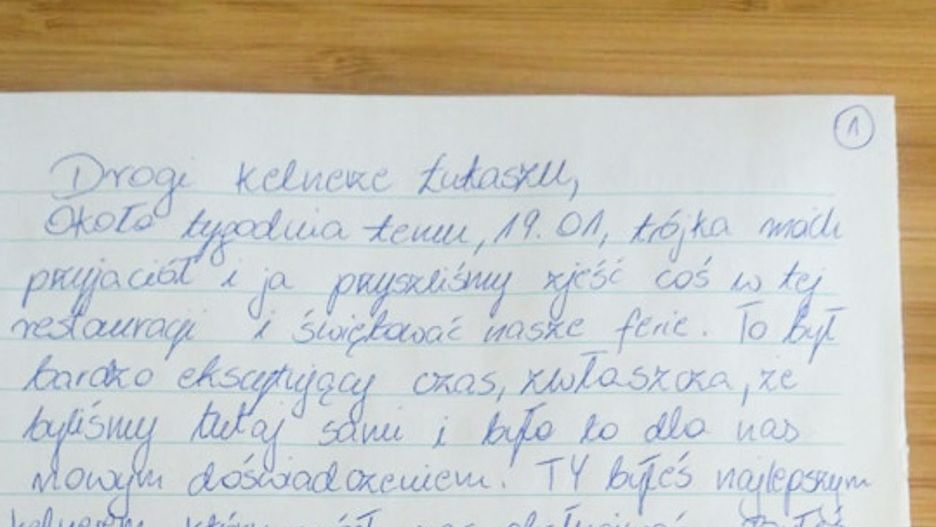 1
Drogi kelnerze Łukaszu,
Około tygodnia temu, 19.01, trójka moich
przyjaciół i ja przyszliśmy zjeść coś w tej
restauracji i świętować nasze ferie. To był
bardzo ekscytujący czas, zwłaszcza, że
byliśmy tutaj sami i było to dla nas
nowym doświadczeniem. TY byłeś najlepszym
kelnerem, nas